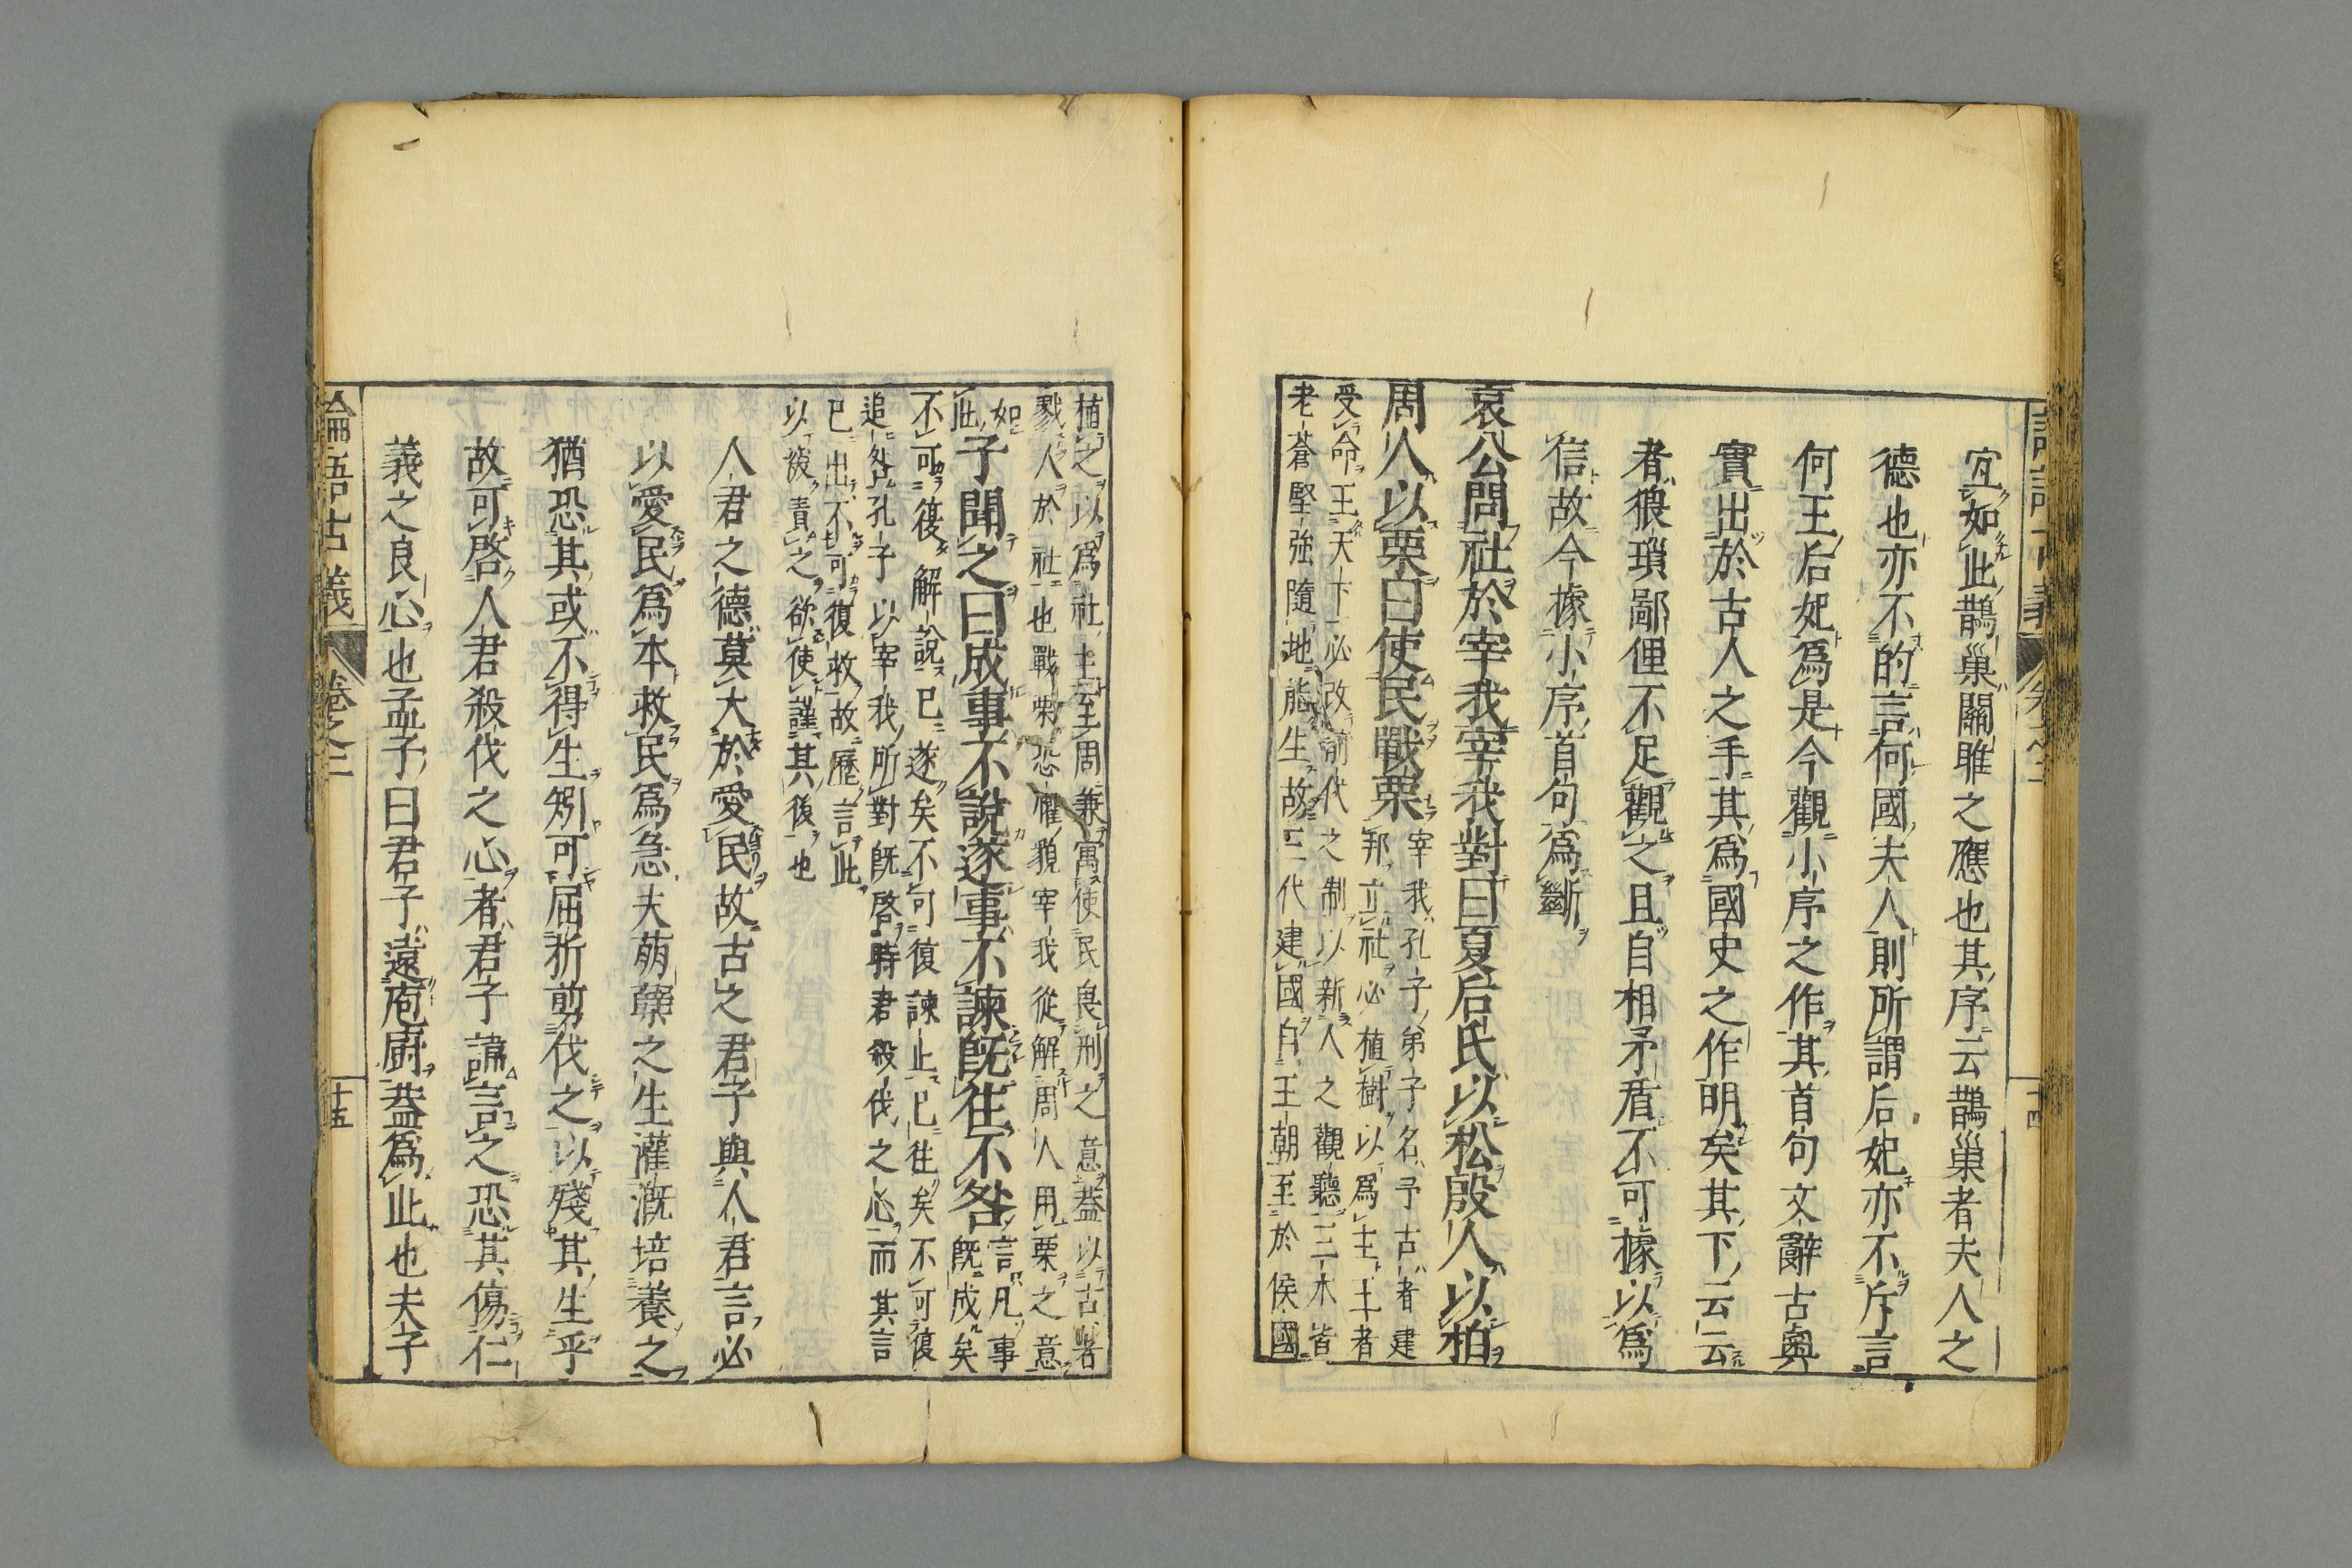 宜如此鵲巢關雎之應也其序云鵲巢者夫人之
德也亦不的言何國夫人則所謂后妃亦不斥言
何王后妃爲是今觀小序之作其首句文辭古奧
實出於古人之手其爲國史之作明矣其下云云
者猥瑣鄙俚不足觀之且自相矛盾不可據以爲
信故今據小序首句爲斷
哀公問社於宰我宰我對曰夏后氏以松殷人以柏
周人以栗曰使民戰栗
宰我孔子弟子名予古者建
邦立社必植樹以爲主王者
受命王天下必改前代之制以新人之觀聽三木皆
老蒼堅強隨地能生故三代建國自王朝至於侯國
植之以爲社主至周兼寓使民畏刑之意蓋以古者
戮人於社也戰栗恐懼貌宰我從解周人用栗之意
如
此
子聞之曰成事不說遂事不諫既往不咎
言凡事
既成矣
不可復解說已遂矣不可復諫止已往矣不可復
追咎孔子以宰我所對既啓時君殺伐之心而其言
已出不可復救故歷言此
以深責之欲使謹其後也
人君之德莫大於愛民故古之君子與人君言必
以愛民爲本救民爲急夫萌蘖之生灌漑培養之
猶恐其或不得生矧可屈折剪伐之以殘其生乎
故可啓人君殺伐之心者君子諱言之恐其傷仁
義之良心也孟子曰君子遠庖厨蓋爲此也夫子
論語古義 卷之二
十五